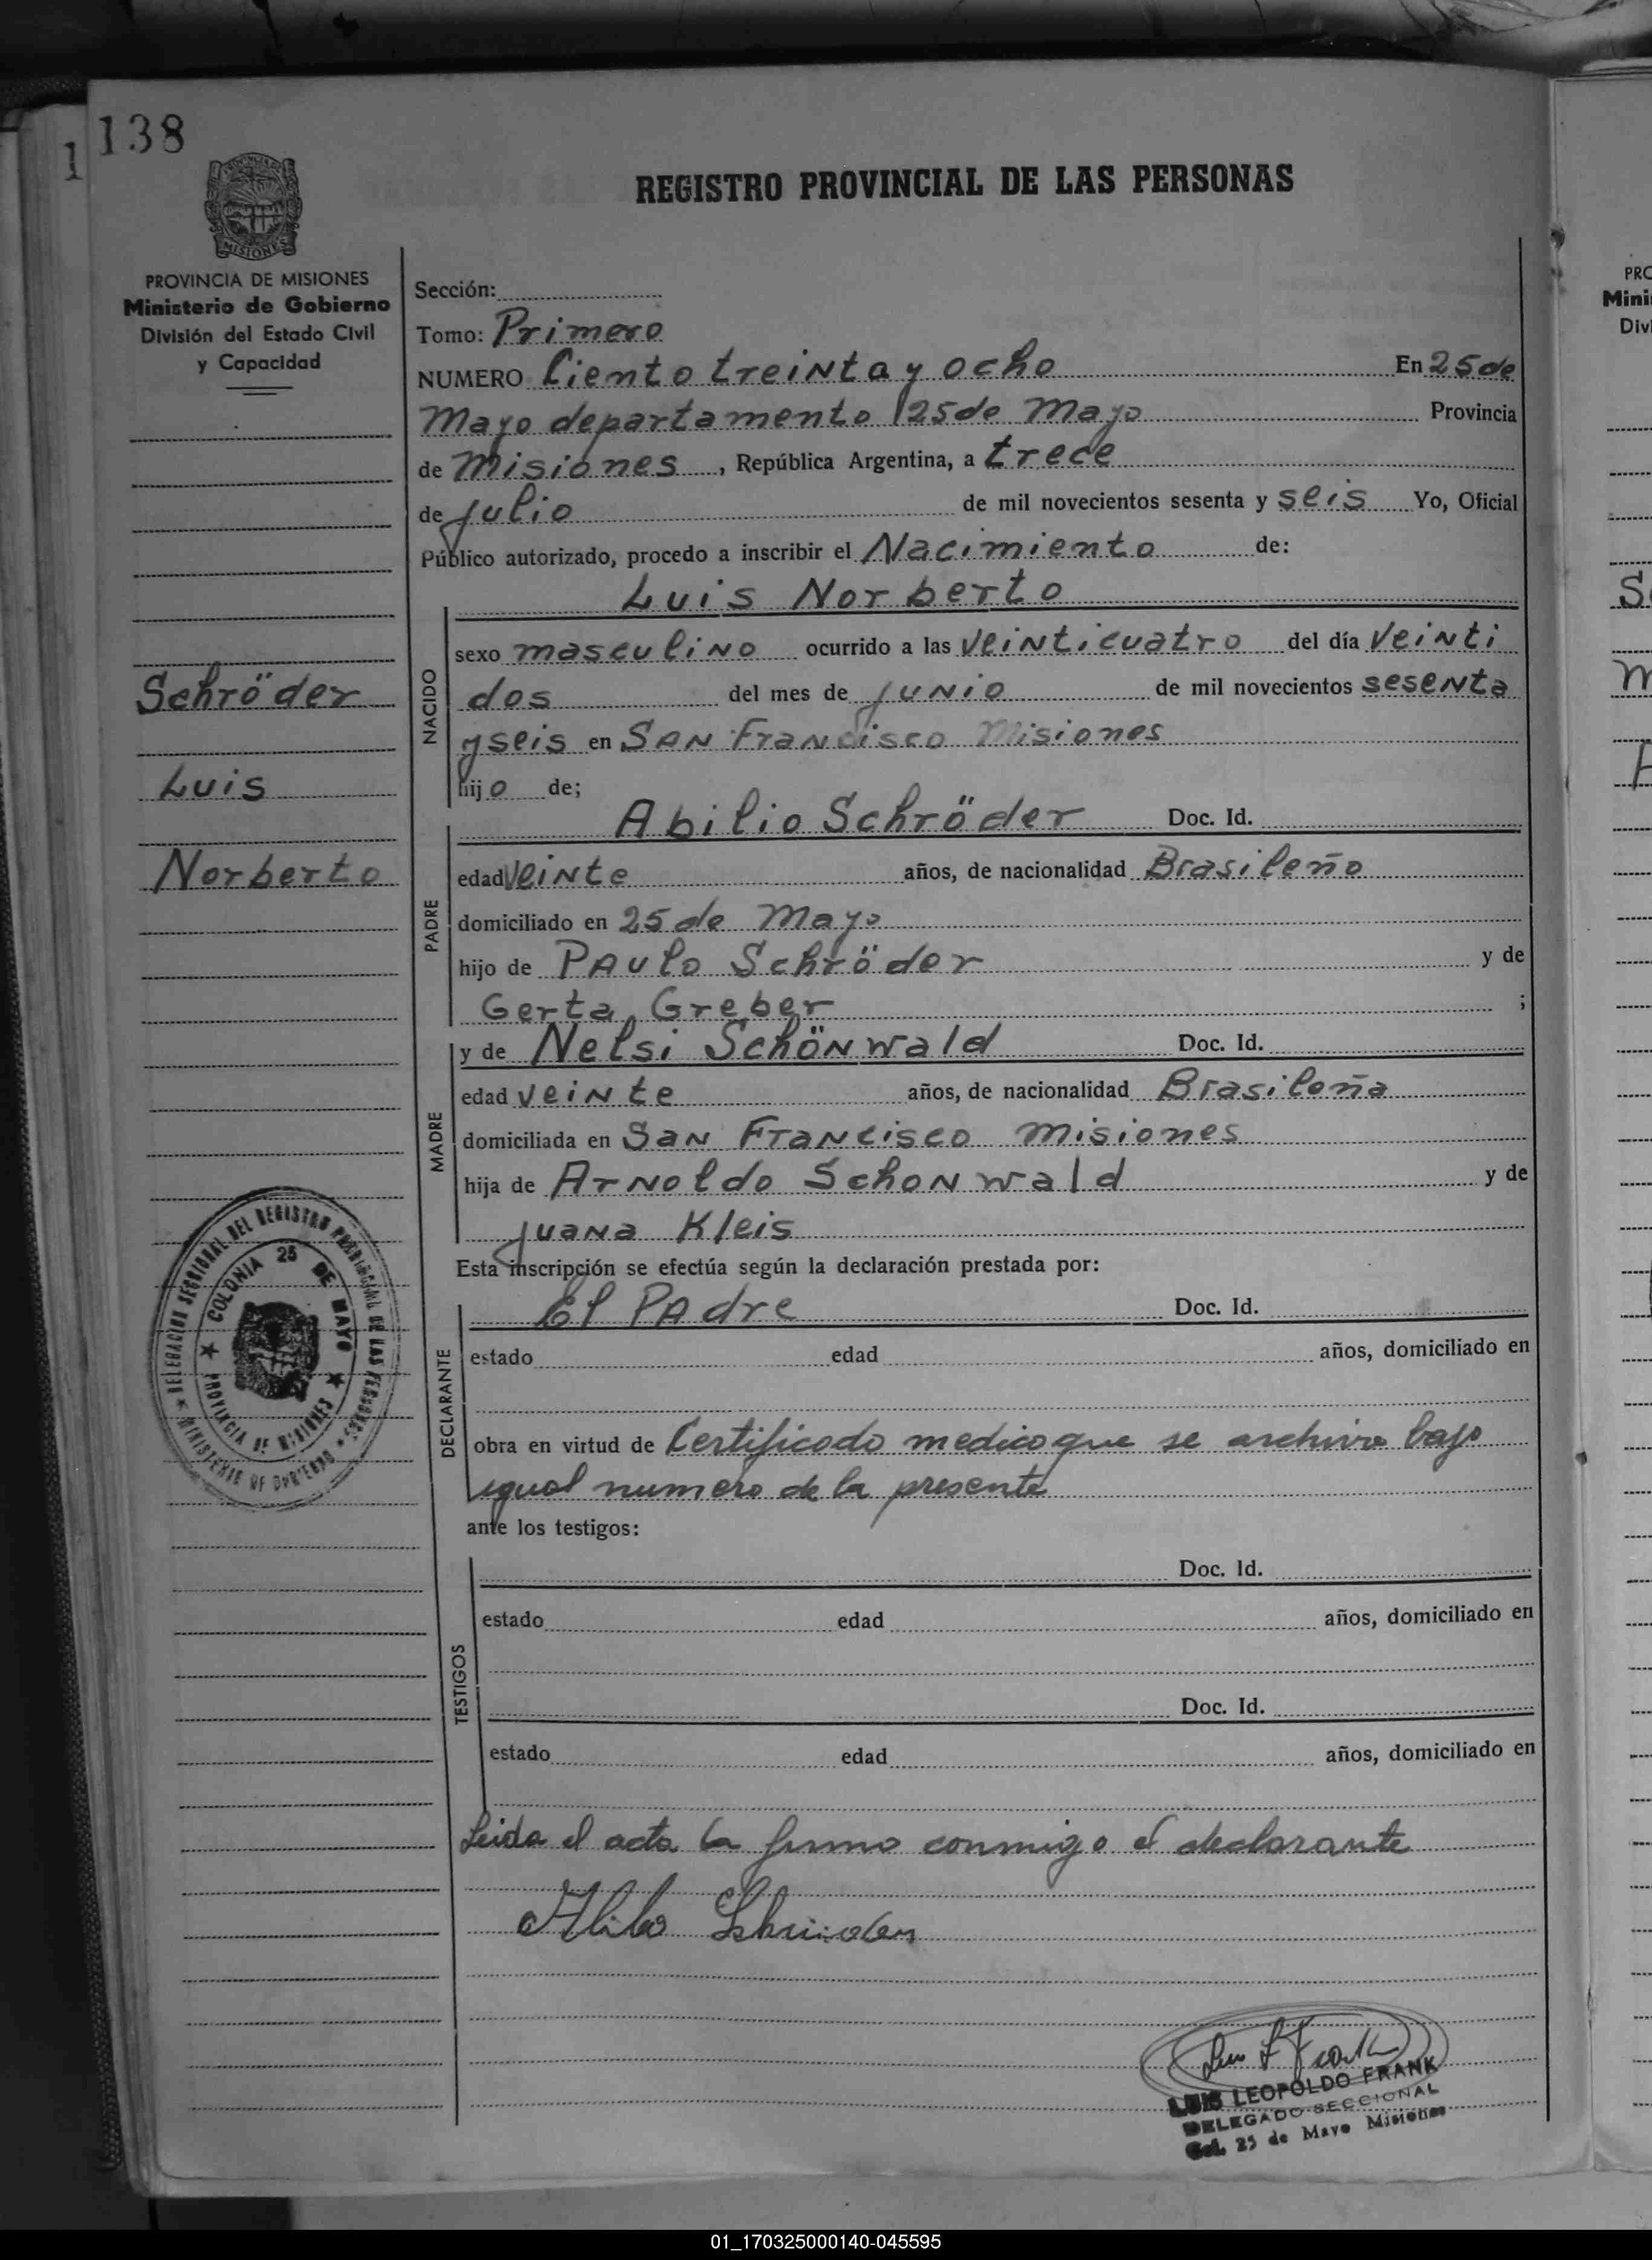 138
1
MISIONES
PROVINCIA DE MISIONES
Ministerio de Gobierno
División del Estado Civil
y Capacidad
Schröder
Luis
Norberto
DELEGACION SECCIONAL DEL REGISTRO PROVINCIAL DE LAS PERSONAS
MINISTERIO DE GOBIERNO
COLONIA 25 DE MAYO
PROVINCIA DE MISIONES
REGISTRO PROVINCIAL DE LAS PERSONAS
Sección:
Tomo: Primero
NUMERO Ciento treinta y ocho En 25 de
Mayo departamento 25 de Mayo Provincia
de Misiones, República Argentina, a trece
de julio de mil novecientos sesenta y seis Yo, Oficial
Público autorizado, procedo a inscribir el Nacimiento de:
Luis Norberto
NACIDO
sexo masculino ocurrido a las veinticuatro del día veinti
dos del mes de junio de mil novecientos sesenta
y seis en San Francisco Misiones
hijo de;
Abilio Schröder Doc. Id.
PADRE
edad veinte años, de nacionalidad Brasileño
domiciliado en 25 de Mayo
hijo de Paulo Schröder y de
Gerta Greber ;
y de Nelsi Schönwald Doc. Id.
MADRE
edad veinte años, de nacionalidad Brasileña
domiciliada en San Francisco Misiones
hija de Arnoldo Schonwald y de
Juana Kleis
Esta inscripción se efectúa según la declaración prestada por:
El Padre Doc. Id.
DECLARANTE
estado edad años, domiciliado en
obra en virtud de Certificado medico que se archiva bajo
igual numero de la presente
ante los testigos:
Doc. Id.
TESTIGOS
estado edad años, domiciliado en
Doc. Id.
estado edad años, domiciliado en
Leida el acta la firma conmigo el declarante
Luis L Frank
LUIS LEOPOLDO FRANK
DELEGADO SECCIONAL
Col. 25 de Mayo Misiones
PRO
Minis
Divi
01_170325000140-045595